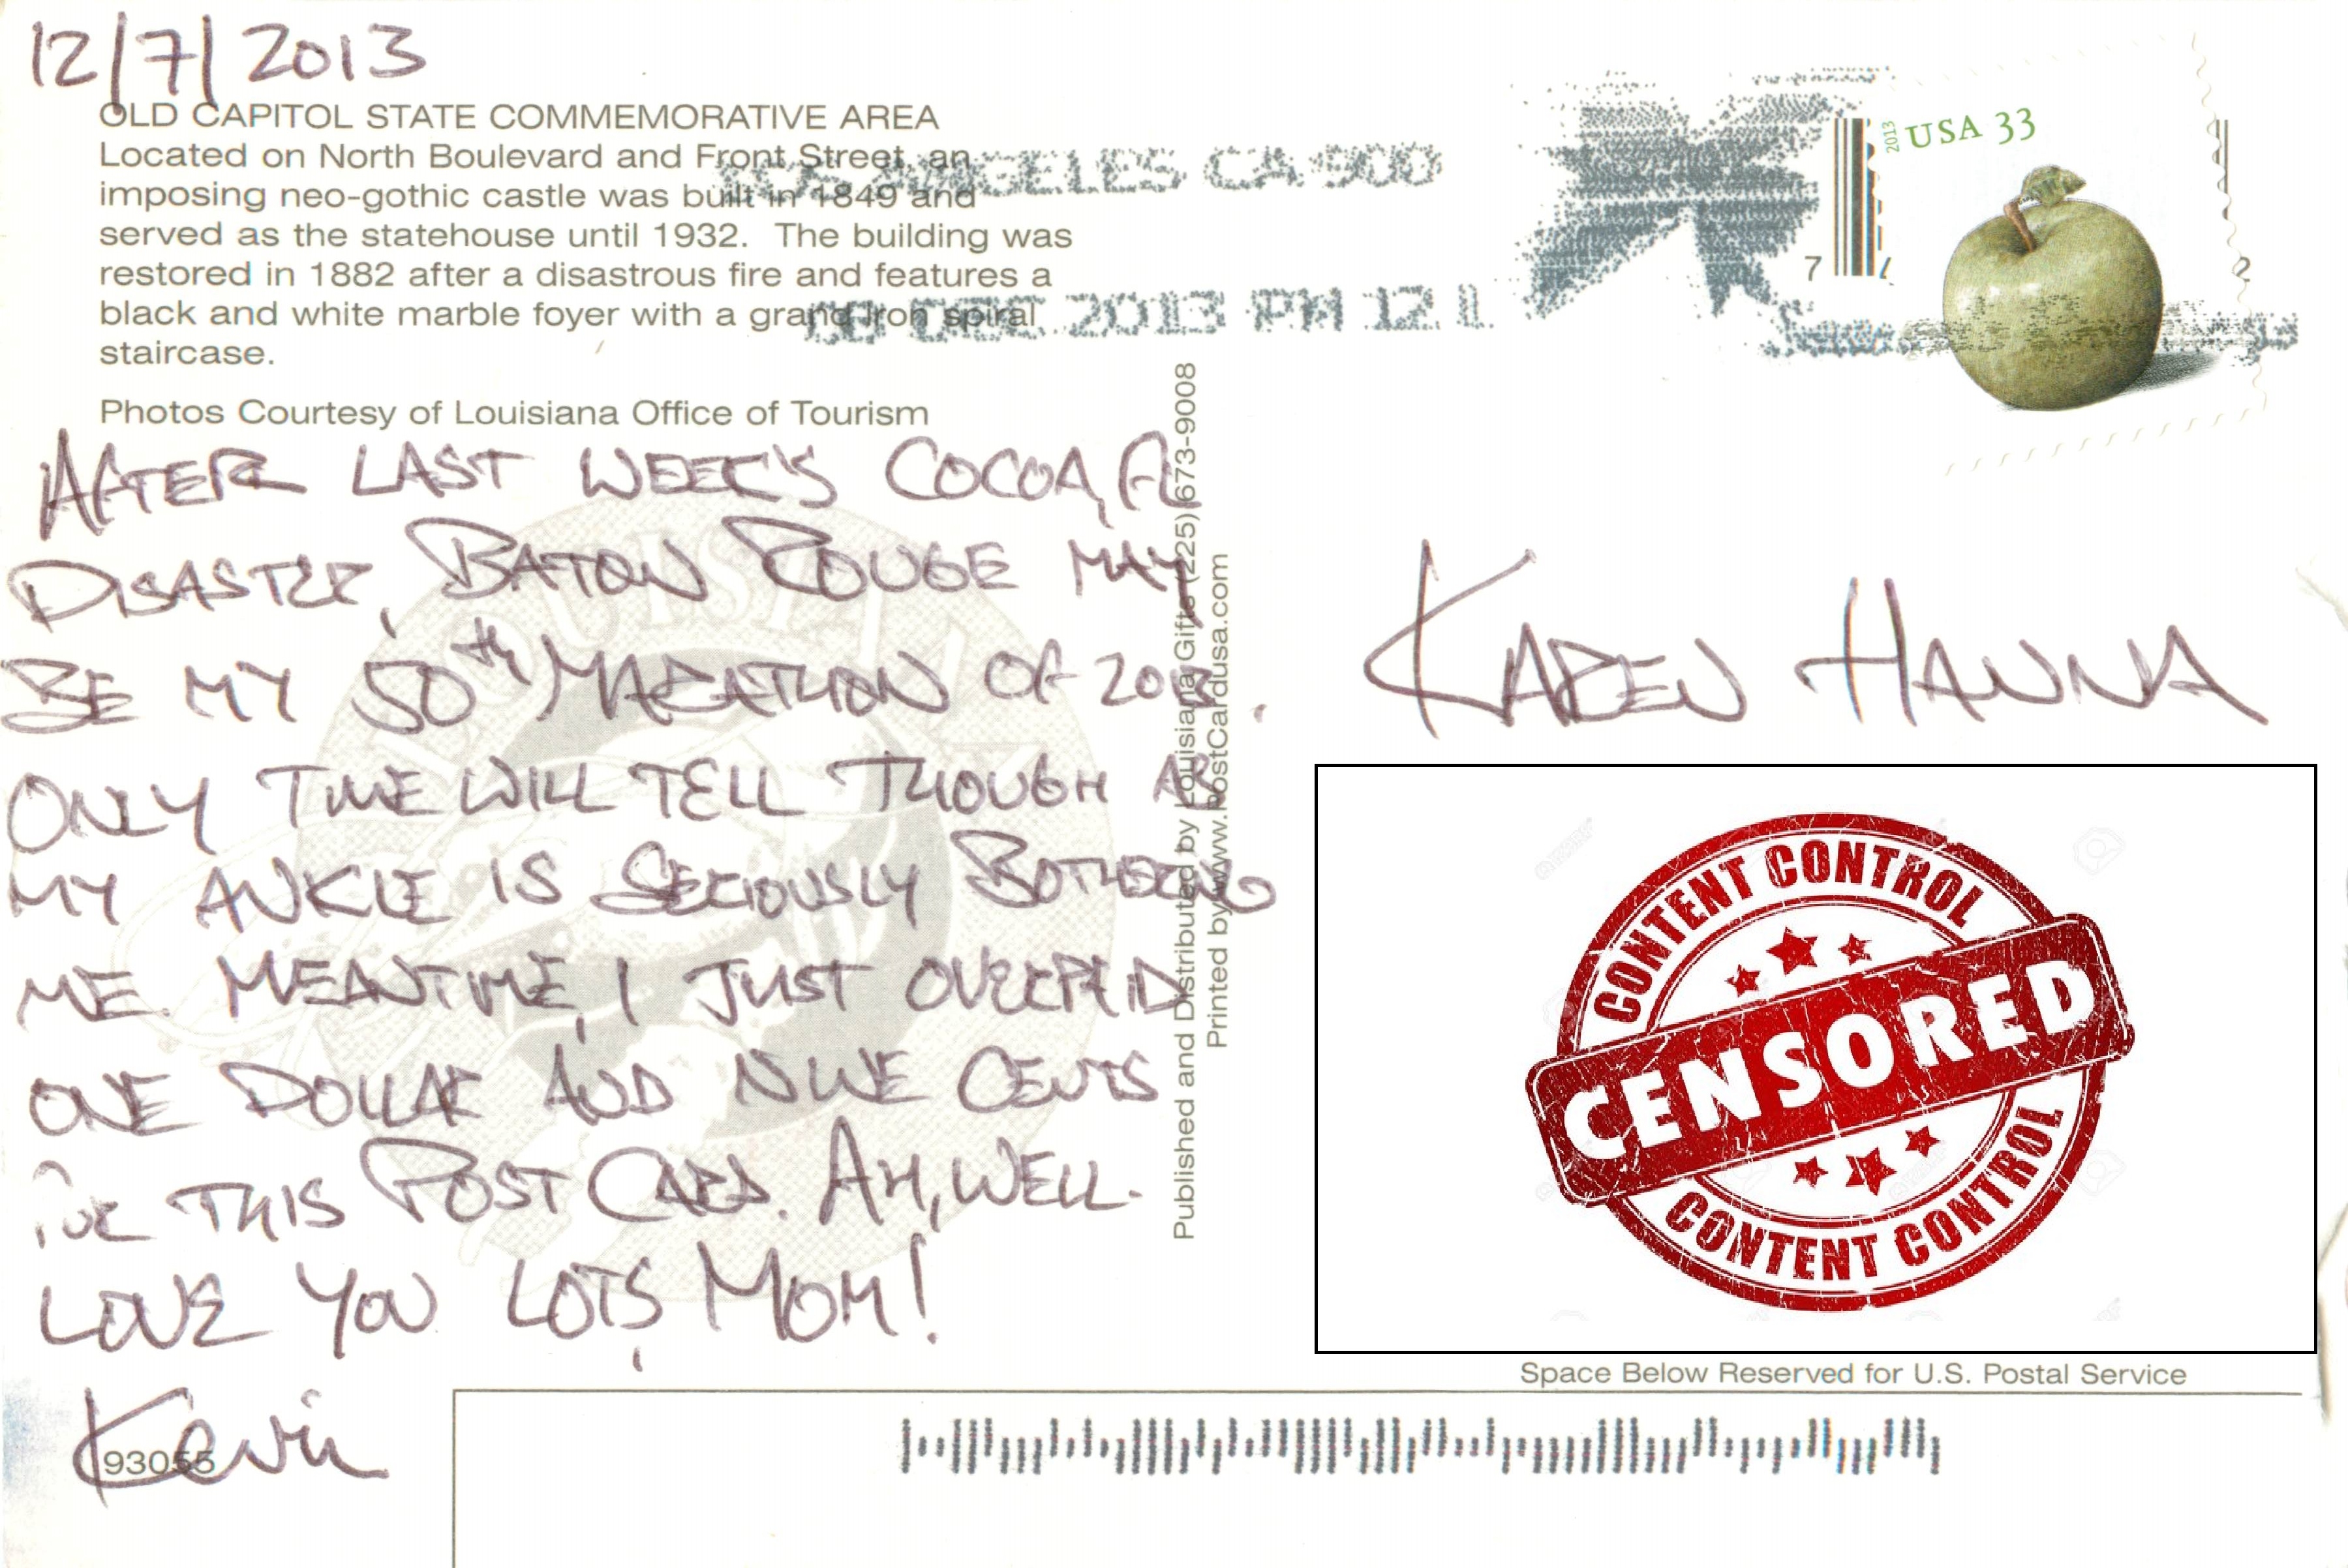 12/7/2013
OLD CAPITOL STATE COMMEMORATIVE AREA
Located on North Boulevard and Front Street, an
imposing neo-gothic castle was built in 1849 and
served as the statehouse until 1932. The building was
restored in 1882 after a disastrous fire and features a
black and white marble foyer with a grand iron spiral
staircase.
Photos Courtesy of Louisiana Office of Tourism
LOS ANGELES CA 900
DEC 2013 PM 12 L
2013 USA 33
AFTER LAST WEEK'S COCOA, FL
DISASTER, BATON ROUGE MAY
BE MY 50th MARATHON OF 2013.
ONLY TIME WILL TELL THOUGH AS
MY ANKLE IS SERIOUSLY BOTHERING
ME. MEANTIME, I JUST OVERPAID
ONE DOLLAR AND NINE CENTS
FOR THIS POST CARD. AH, WELL.
LOVE YOU LOTS, MOM!
Kevin
93055
LOUISIANA
Published and Distributed by Louisiana Gifts (225) 673-9008
Printed by www.PostCardusa.com
KAREN HANNA
CONTENT CONTROL
CENSORED
CONTENT CONTROL
Space Below Reserved for U.S. Postal Service